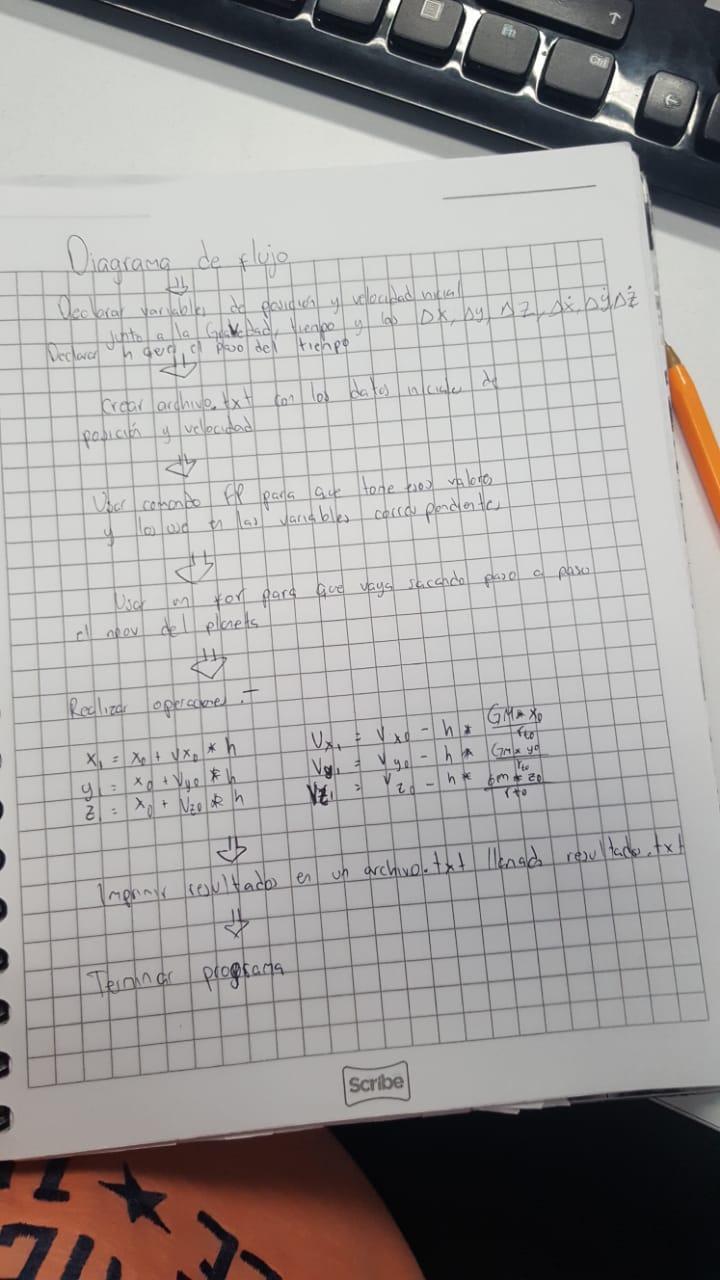 Diagrama de flujo
Declarar variables de posición y velocidad inicial
junto a la Gravedad, tiempo y los Δx, Δy, Δz, Δẋ, Δẏ Δż
Declarar h que el paso del tiempo
Crear archivo.txt con los datos iniciales de
posición y velocidad
Usar comando FP para que tome esos valores
y los use en las variables correspondientes
Usar un for para que vaya sacando paso a paso
el mov del planeta
Realizar operaciones.-
x₁ = x₀ + Vx₀ * h    Vx₁ = Vx₀ - h * GM * x₀ / r₍₀
y₁ = x₀ + Vy₀ * h    Vy₁ = Vy₀ - h * GM * y₀ / r₍₀
z₁ = x₀ + Vz₀ * h    Vz₁ = Vz₀ - h * GM * z₀ / r₍₀
Imprimir resultado en un archivo.txt llamado resultado.txt
Terminar programa
Scribe
Ctrl